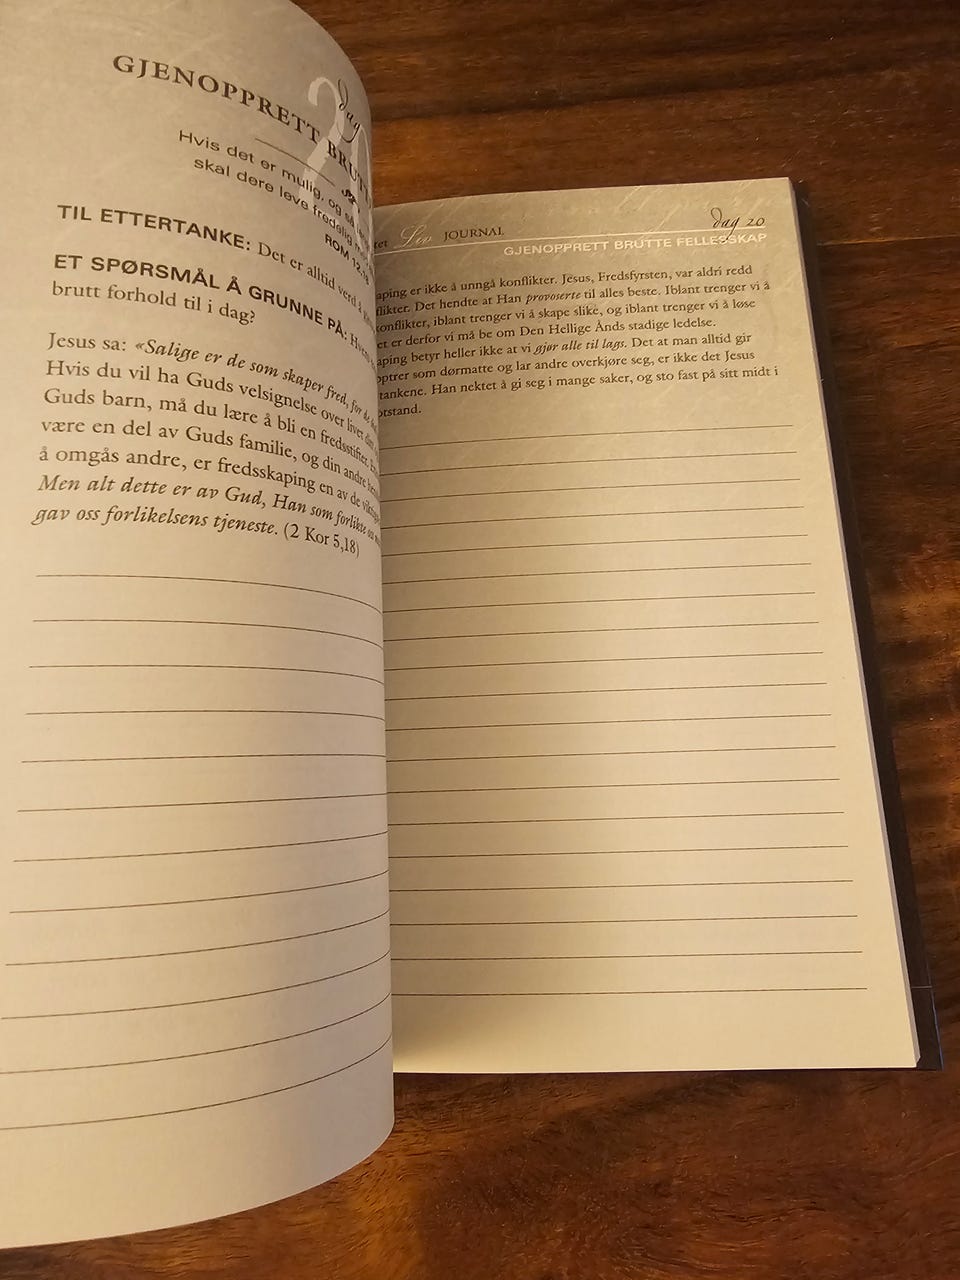 dag
GJENOPPRETT
Hvis det er mulig, og
skal dere leve fredelig
ROM 12,18
TIL ETTERTANKE: Det er alltid verd å
ET SPØRSMÅL Å GRUNNE PÅ:
brutt forhold til i dag?
Jesus sa: «Salige er de som skaper fred, for de
Hvis du vil ha Guds velsignelse over livet
Guds barn, må du lære å bli en fredsstifter.
være en del av Guds familie, og din andre
å omgås andre, er fredsskaping en av de
Men alt dette er av Gud, Han som forlikte
gav oss forlikelsens tjeneste. (2 Kor 5,18)
Liv JOURNAL
dag 20
GJENOPPRETT BRUTTE FELLESSKAP
er ikke å unngå konflikter. Jesus, Fredsfyrsten, var aldri redd
Det hendte at Han provoserte til alles beste. Iblant trenger vi å
konflikter, iblant trenger vi å skape slike, og iblant trenger vi å løse
er derfor vi må be om Den Hellige Ånds stadige ledelse.
betyr heller ikke at vi gjør alle til lags. Det at man alltid gir
som dørmatte og lar andre overkjøre seg, er ikke det Jesus
tankene. Han nektet å gi seg i mange saker, og sto fast på sitt midt i